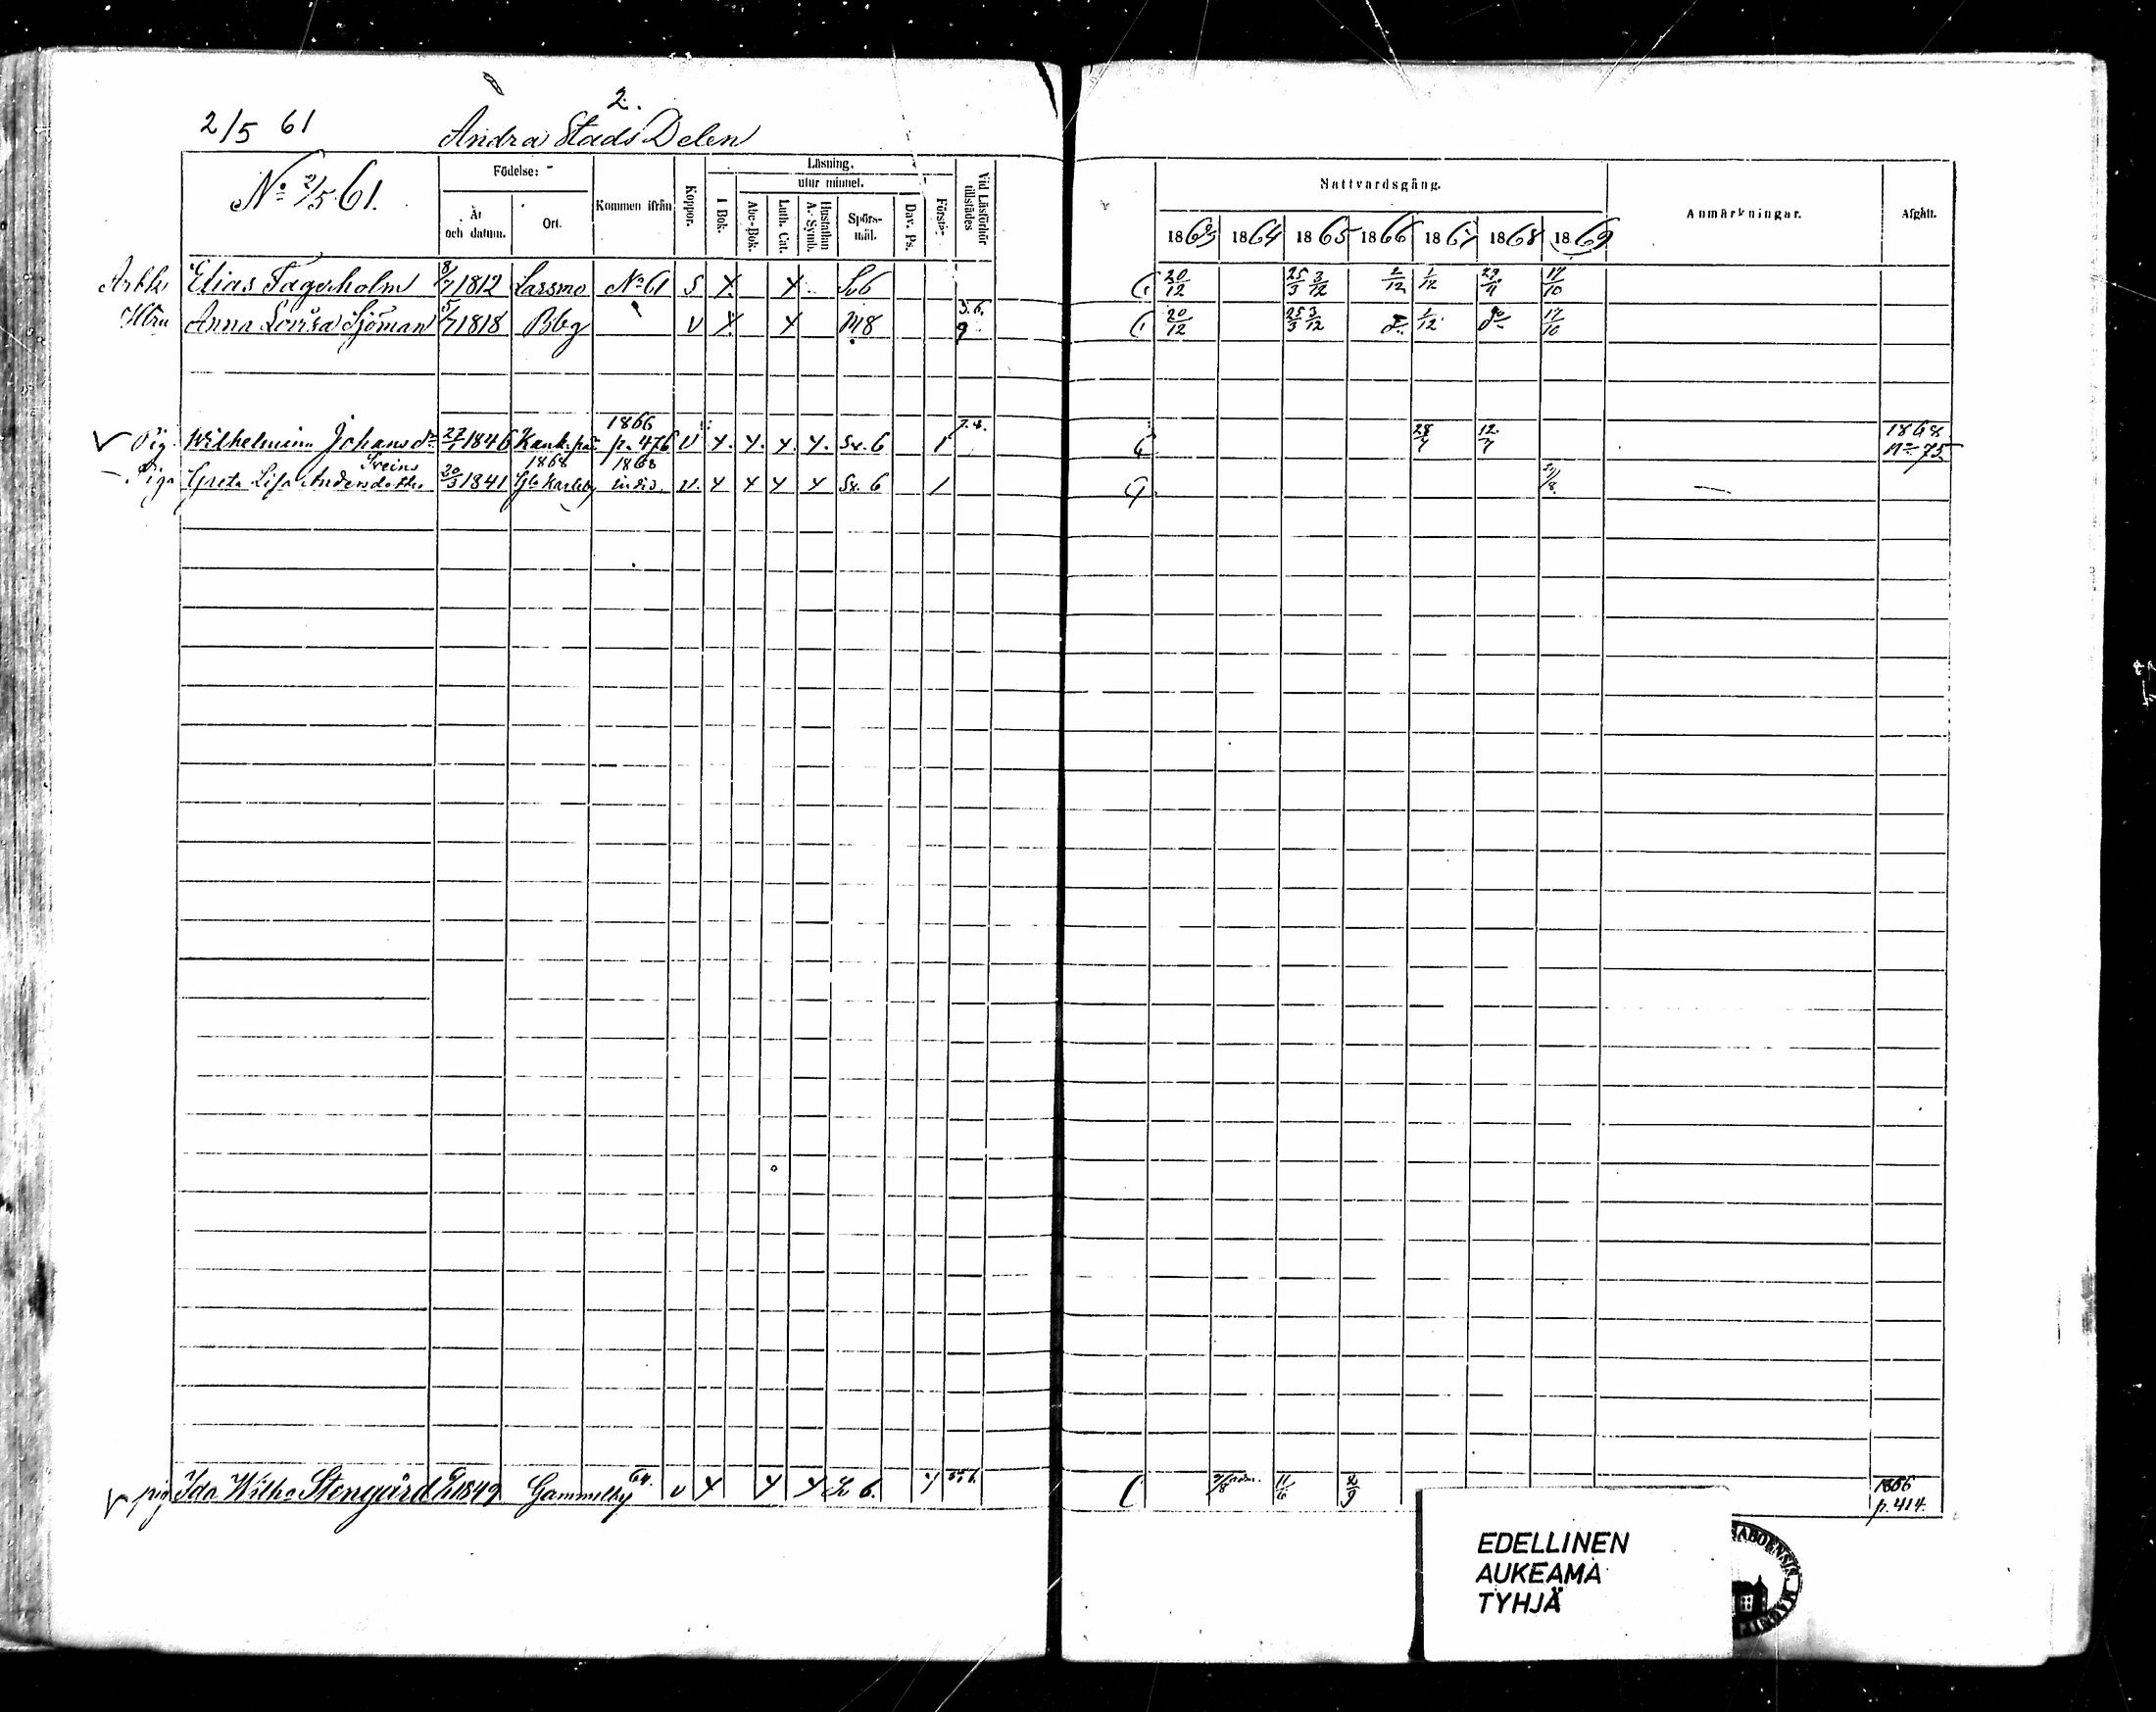 2.
2/5 61 Andra Stads Delen
No 2/5 61. Födelse: År och datum. Ort. Kommen ifrån Koppor. Läsning. I Bok. utur minnet. Abc-Bok. Luth. Cat. Hustaflan A.-Symb. Spörs-mål. Dav. Ps. Förstå- Vid Läsförhör tillstädes Nattvardsgång. 1863 1864 1865 1866 1867 1868 1869 Anmärkningar. Afgått.
Elias Fagerholm 8/7 1812 Larsmo No 61 S Sv 6 20/12 25/3 3/12 2/12 1/12 17/10
Hru Anna Lovisa Sjöman 5/7 1818 Bbg v M8 5.6. 9 20/12 25/3 3/12 1/12 17/10
1866 7.8. 1868
Pig. Wilhelmina Johansdr 1846 p. 476 v Sv. 6 1 28/7 12/7 No 75
Sveins 1868 1868
Piga Greta Lisa Andersdotter 20/3 1841 Gla Karleby v. Sv. 6 1
pig Ida Wilha Stengård 1849 Gammelby 64. v Sv 6. 5.6. 11/6 1866
p. 414.
EDELLINEN
AUKEAMA
TYHJÄ
ABOENSIS